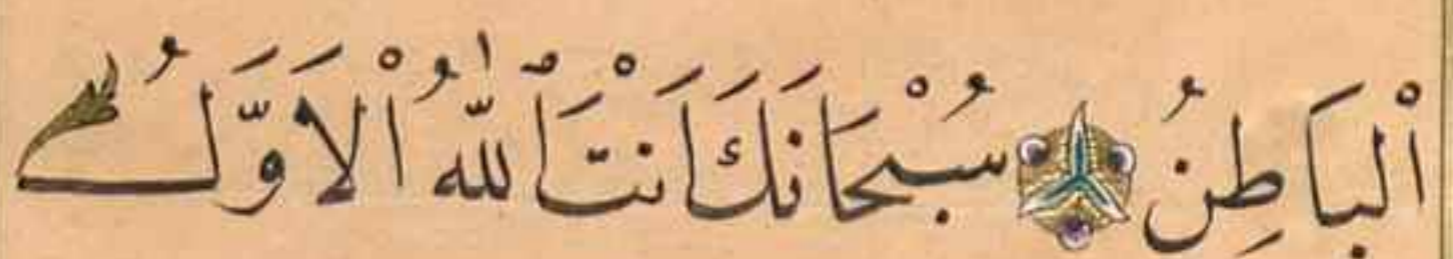 اْلبَاطِنُ سُبْحَانَكَ اَنْتَ ٱللّٰهُ اْلاَوَّلُ